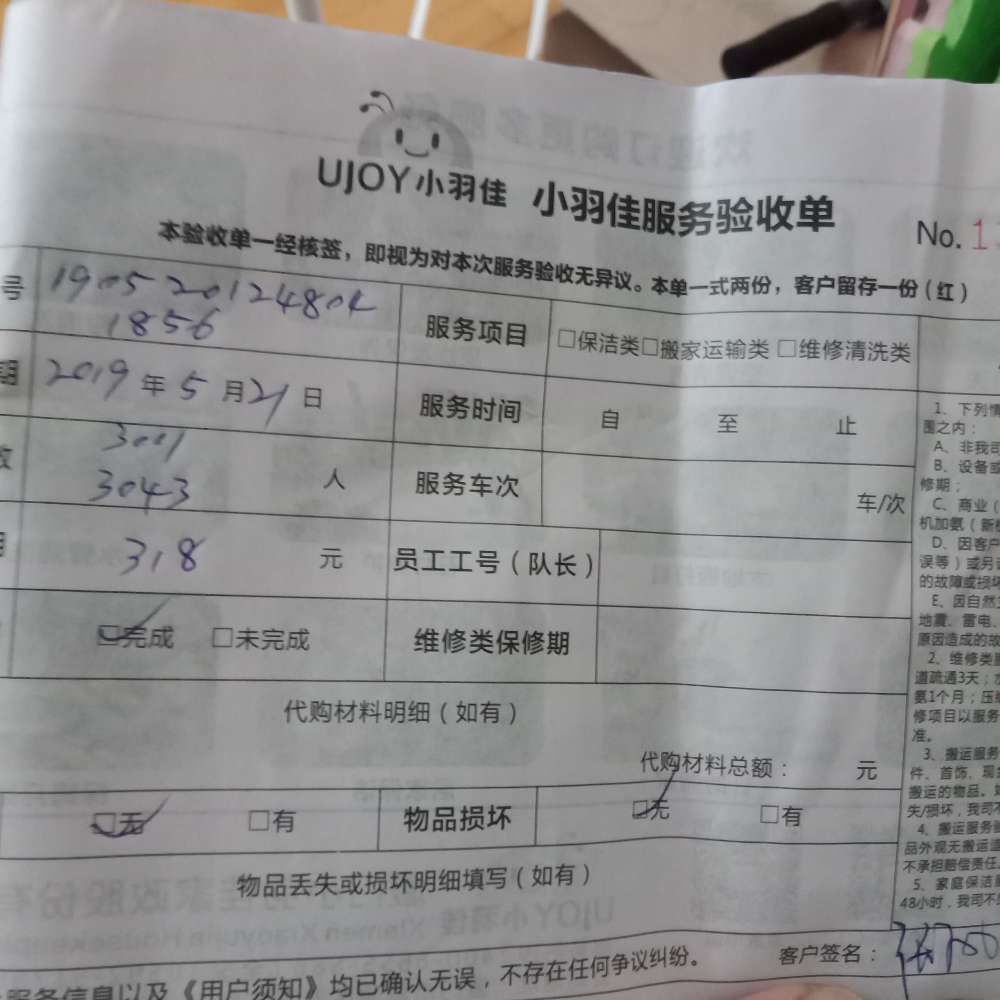 UJOY小羽佳 小羽佳服务验收单
No. 1
本验收单一经核签，即视为对本次服务验收无异议。本单一式两份，客户留存一份（红）
号 190520124804
1856
服务项目 □保洁类□搬家运输类 □维修清洗类
期 2019年5月21日 服务时间 自 至 止
3001
3043 人 服务车次 车/次
318 元 员工工号（队长）
□完成 □未完成 维修类保修期
代购材料明细（如有）
代购材料总额： 元
□无 □有 物品损坏 □无 □有
物品丢失或损坏明细填写（如有）
服务信息以及《用户须知》均已确认无误，不存在任何争议纠纷。 客户签名：
1、下列情
围之内：
A、非我司
B、设备或
修期；
C、商业（
机加氨（新
D、因客户
误等）或另
的故障或损坏
E、因自然
地震、雷电、
原因造成的故
2、维修类
道疏通3天；
氨1个月；压
修项目以服务
准。
3、搬运服务
件、首饰、现
搬运的物品。
失/损坏，我司不
4、搬运服务
品外观无搬运
不承担赔偿责任
5、家庭保洁
48小时，我司不